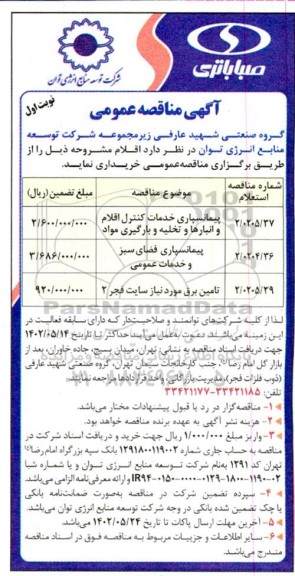 صباباتری
شرکت توسعه منابع انرژی توان
نوبت اول
آگهی مناقصه عمومی
گروه صنعتی شهید عارفی زیرمجموعه شرکت توسعه
منابع انرژی توان در نظر دارد اقلام مشروحه ذیل را از
طریق برگزاری مناقصه‌عمومی خریداری نماید.
شماره مناقصه استعلام	موضوع مناقصه	مبلغ تضمین(ریال)
۲/۰۲۰۵/۳۷	پیمانسپاری خدمات کنترل اقلام و انبارها و تخلیه و بارگیری مواد	۲/۶۰۰/۰۰۰/۰۰۰
۲/۰۲۰۴/۳۶	پیمانسپاری فضای سبز و خدمات عمومی	۳/۶۸۶/۰۰۰/۰۰۰
۲/۰۲۰۵/۲۹	تامین برق مورد نیاز سایت فجر ۲	۹۲۰/۰۰۰/۰۰۰
لـذا از کلیه شـرکت‌های توانمنـد و صلاحیت‌دار کـه دارای سـابقه فعالیـت در
این زمینه می‌باشند دعوت به‌عمل می‌آیـد حداکثر تا تاریخ ۱۴۰۲/۰۵/۱۴
جهت دریافت اسناد مناقصه به نشانی تهران، میدان بسیج، جاده خاوران، بعد از
بازار گل امام رضا(ع)، جنب کارخانجات سیمان تهران، گروه صنعتی شهید عارفی
(ذوب فلزات فجر)، مدیریت بازرگانی، واحد قراردادها مراجعه نمایند.
تلفن: ۳۳۴۲۱۱۸۵-۳۳۴۲۱۱۷۷
۱- مناقصه‌گزار در رد یا قبول پیشنهادات مختار می‌باشد.
۲- هزینه نشر آگهی به عهده برنده مناقصه خواهد بود.
۳- واریز مبلغ ۱/۰۰۰/۰۰۰ ریال جهت خرید و دریافت اسناد شرکت در
مناقصه به حساب جاری شماره ۱۲۹۱۸۰۰۱۱۹۰۰۲ بانک سپه بزرگراه امام رضا(ع)
تهران کد ۱۲۹۱ به‌نام شرکت توسعه منابع انرژی توان و یا شماره شبا
وارائه معرفی‌نامه الزامی می‌باشد
۴- سپرده تضمین شرکت در مناقصه به‌صورت ضمانت‌نامه بانکی
یا چک تضمین شده بانکی در وجه شرکت توسعه منابع انرژی توان می‌باشد.
۵- آخرین مهلت ارسال پاکات تا تاریخ ۱۴۰۲/۰۵/۲۴ می‌باشد.
۶- سایر اطلاعات و جزییات مربوط به مناقصه فوق در اسناد مناقصه
مندرج می‌باشد.